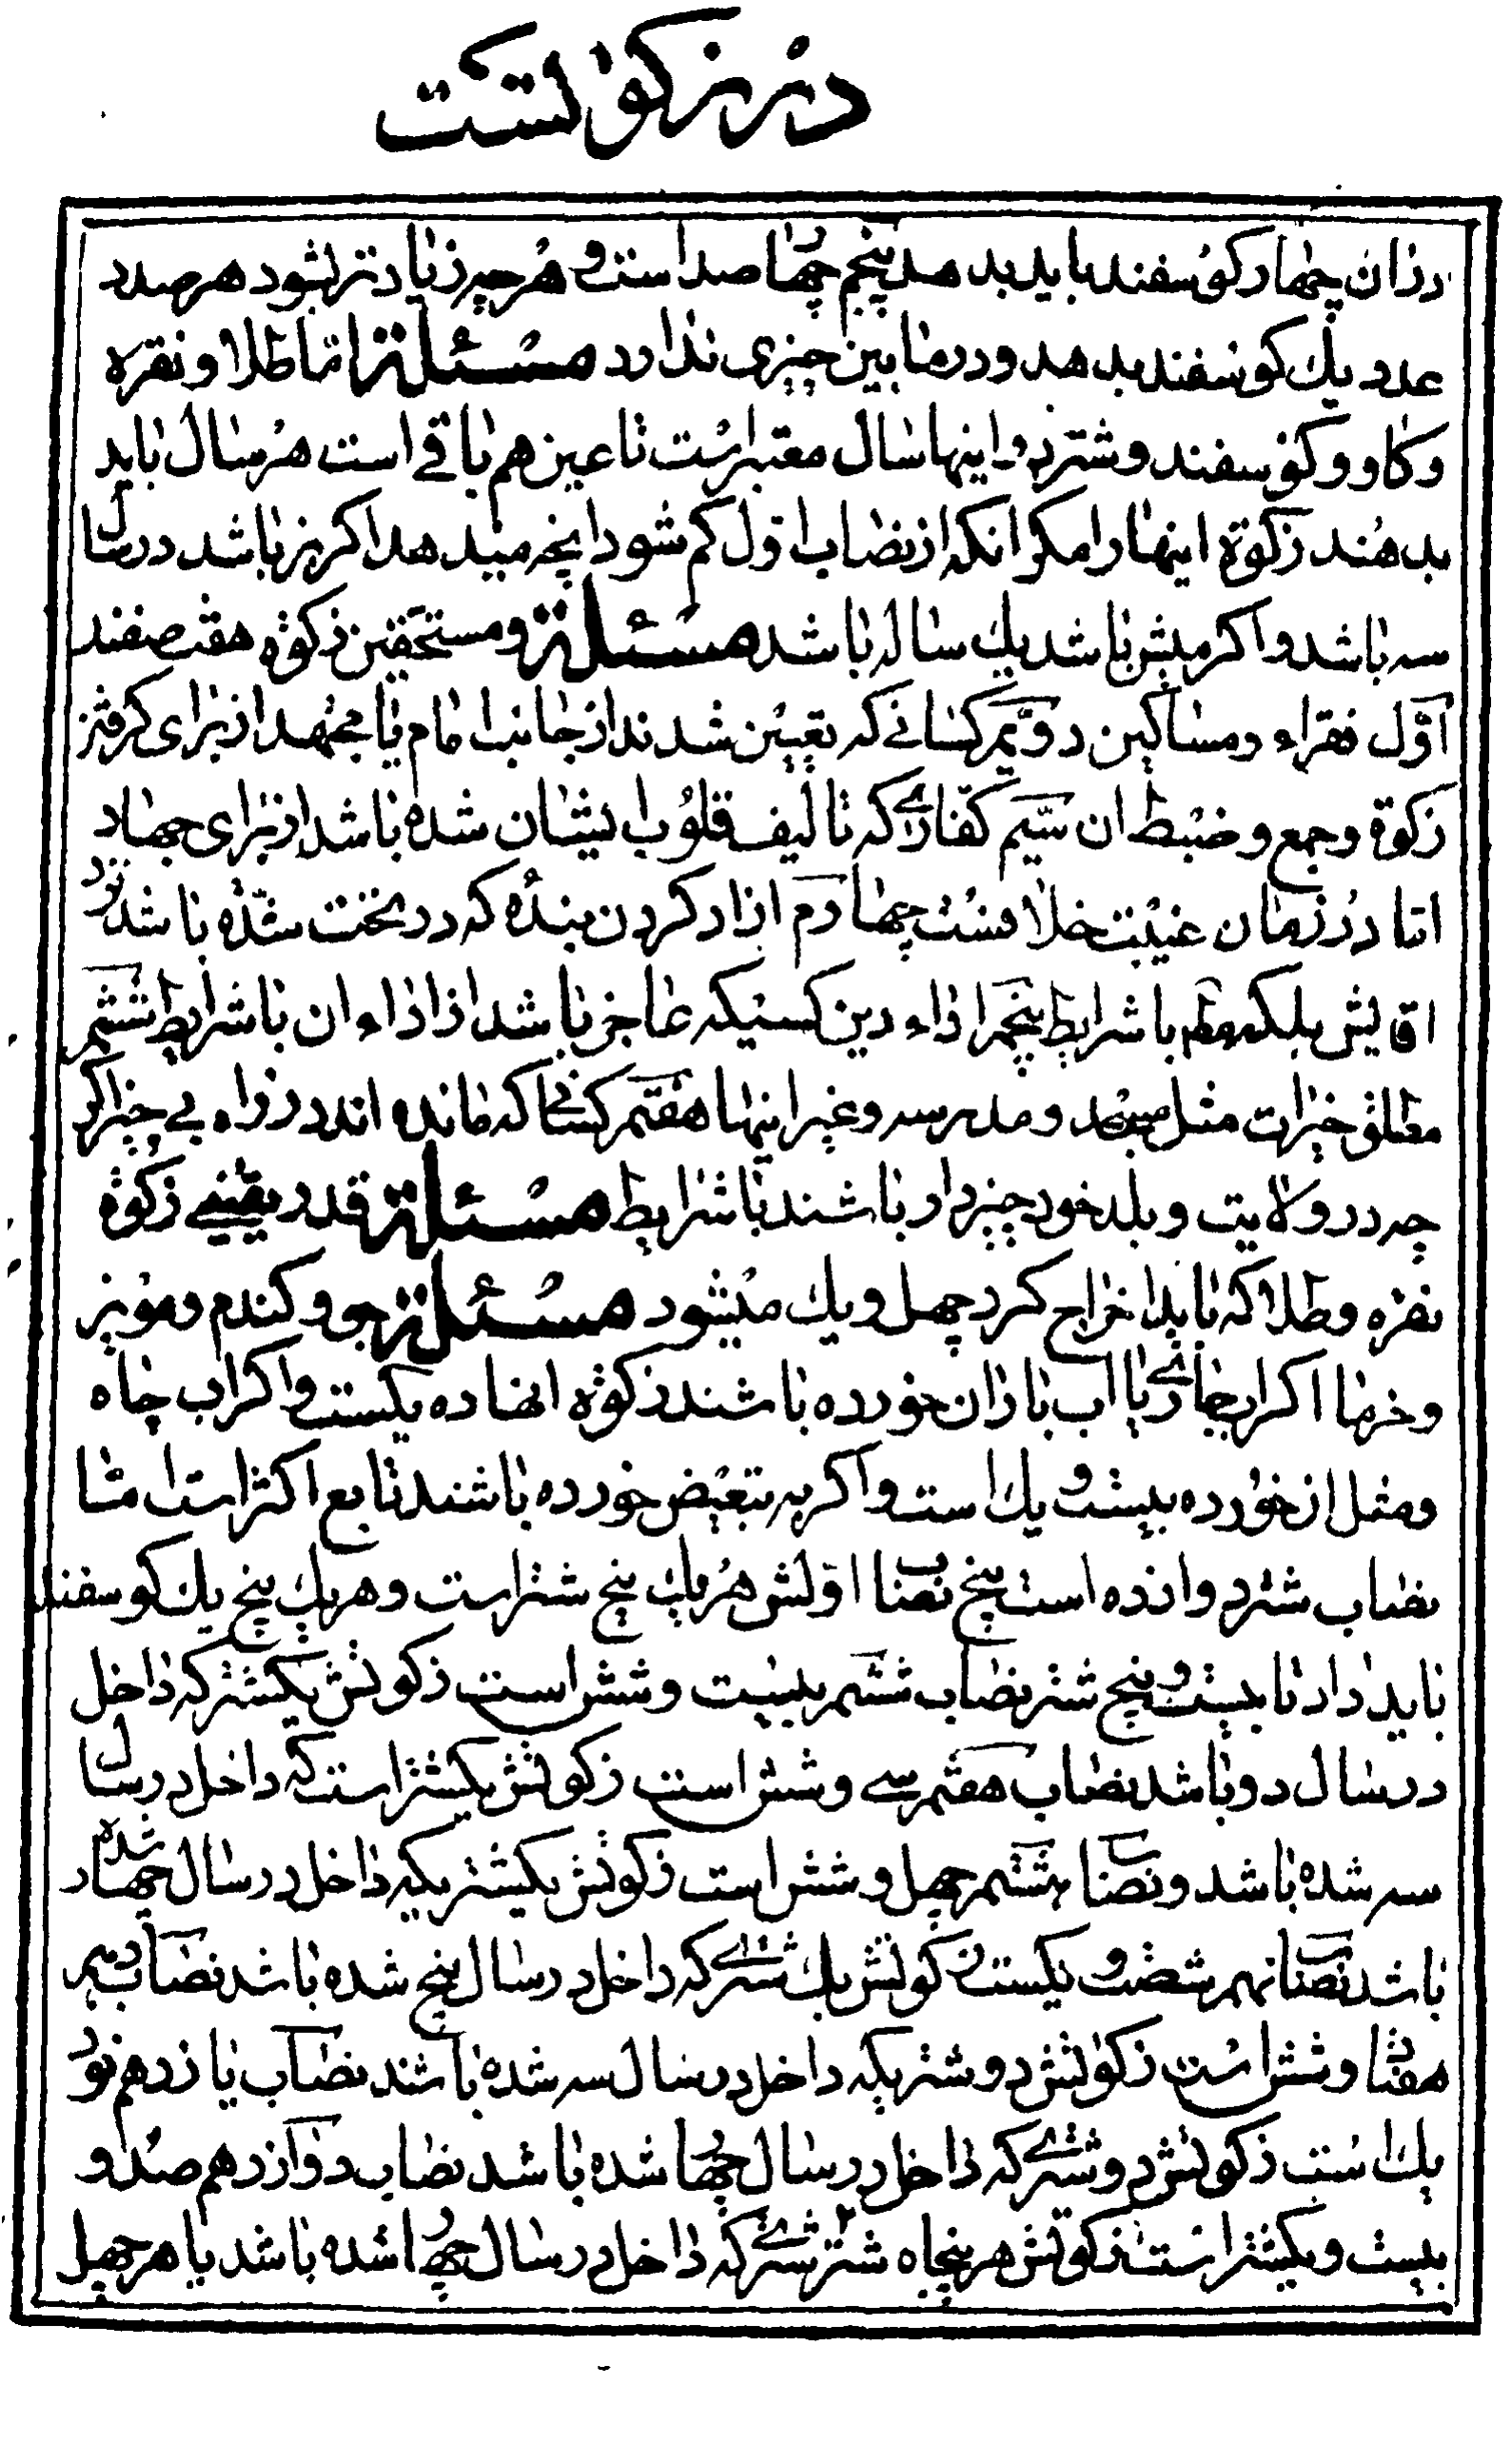 در زکوتست
در ان چهار کوسفند باید بدهد پنجم چهار صد است و هر چیز زیادتر بشود هر صد
عدد یک کوسفند بدهد و در مابین چیزی ندارد مسئلة اما طلا و نقره
و کاو و کوسفند و شتر در اینها سال معتبر است تا عین هم باقی است هر سال باید
بدهند زکوة اینها را مکر انکه از نصاب اول کم شود انچه میدهد اکر بز باشد در سال
سه باشد و اکر میش باشد یک ساله باشد مسئلة و مستحقین زکوة هفت صفند
اول فقراء و مساکین دویم کسانے که تعیین شدند از جانب امام یا مجتهد از برای کرفتن
زکوة و جمع و ضبط ان سیم کفارے که تالیف قلوب ایشان شده باشد از برای جهاد
اما در زمان غیبت خلافست چهارم ازاد کردن بنده که در تحت شده باشد نزد
اقایش بلکه مطلقا با شرایط پنجم اداء دین کسیکه عاجز باشد از اداء ان با شرایط ششم
مطلق خیرات مثل مسجد و مدرسه و غیر اینها هفتم کسانی که مانده اند در راه بے چیز اکر
چه در ولایت و بلد خود چیزدار باشند با شرایط مسئلة قدر یقینے زکوة
نقره و طلا که باید اخراج کرد چهل و یک میشود مسئلة جو و کندم و مویز
و خرما اکر اب جارے یا اب باران خورده باشند زکوة انها ده یکست و اکر اب چاه
و مثل ان خورده بیست و یک است و اکر به تبعیض خورده باشند تابع اکثر است اما
نصاب شتر دوازده است پنج نصاب اولش هر یک پنج شتر است و هر یک پنج یک کوسفند
باید داد تا بیست و پنج شتر نصاب ششم بیست و شش است زکوتش یکشتر که داخل
در سال دو باشد نصاب هفتم سے و شش است زکوتش یکشتر است که داخل در سال
سه شده باشد و نصاب هشتم چهل و شش است زکوتش یکشتر یکه داخل در سال چهار شده
باشد نصاب نهم شصت و یکست زکوتش یک شترے که داخل در سال پنج شده باشد نصاب دهم
هفتاد و شش است زکوتش دو شتر یکه داخل در سال سه شده باشند نصاب یازدهم نود
یک است زکوتش دو شترے که داخل در سال چهار شده باشد نصاب دوازدهم صد و
بیست و یکشتر است زکوتش هر پنجاه شتر شترے که داخل در سال چهار شده باشد یا هر چهل